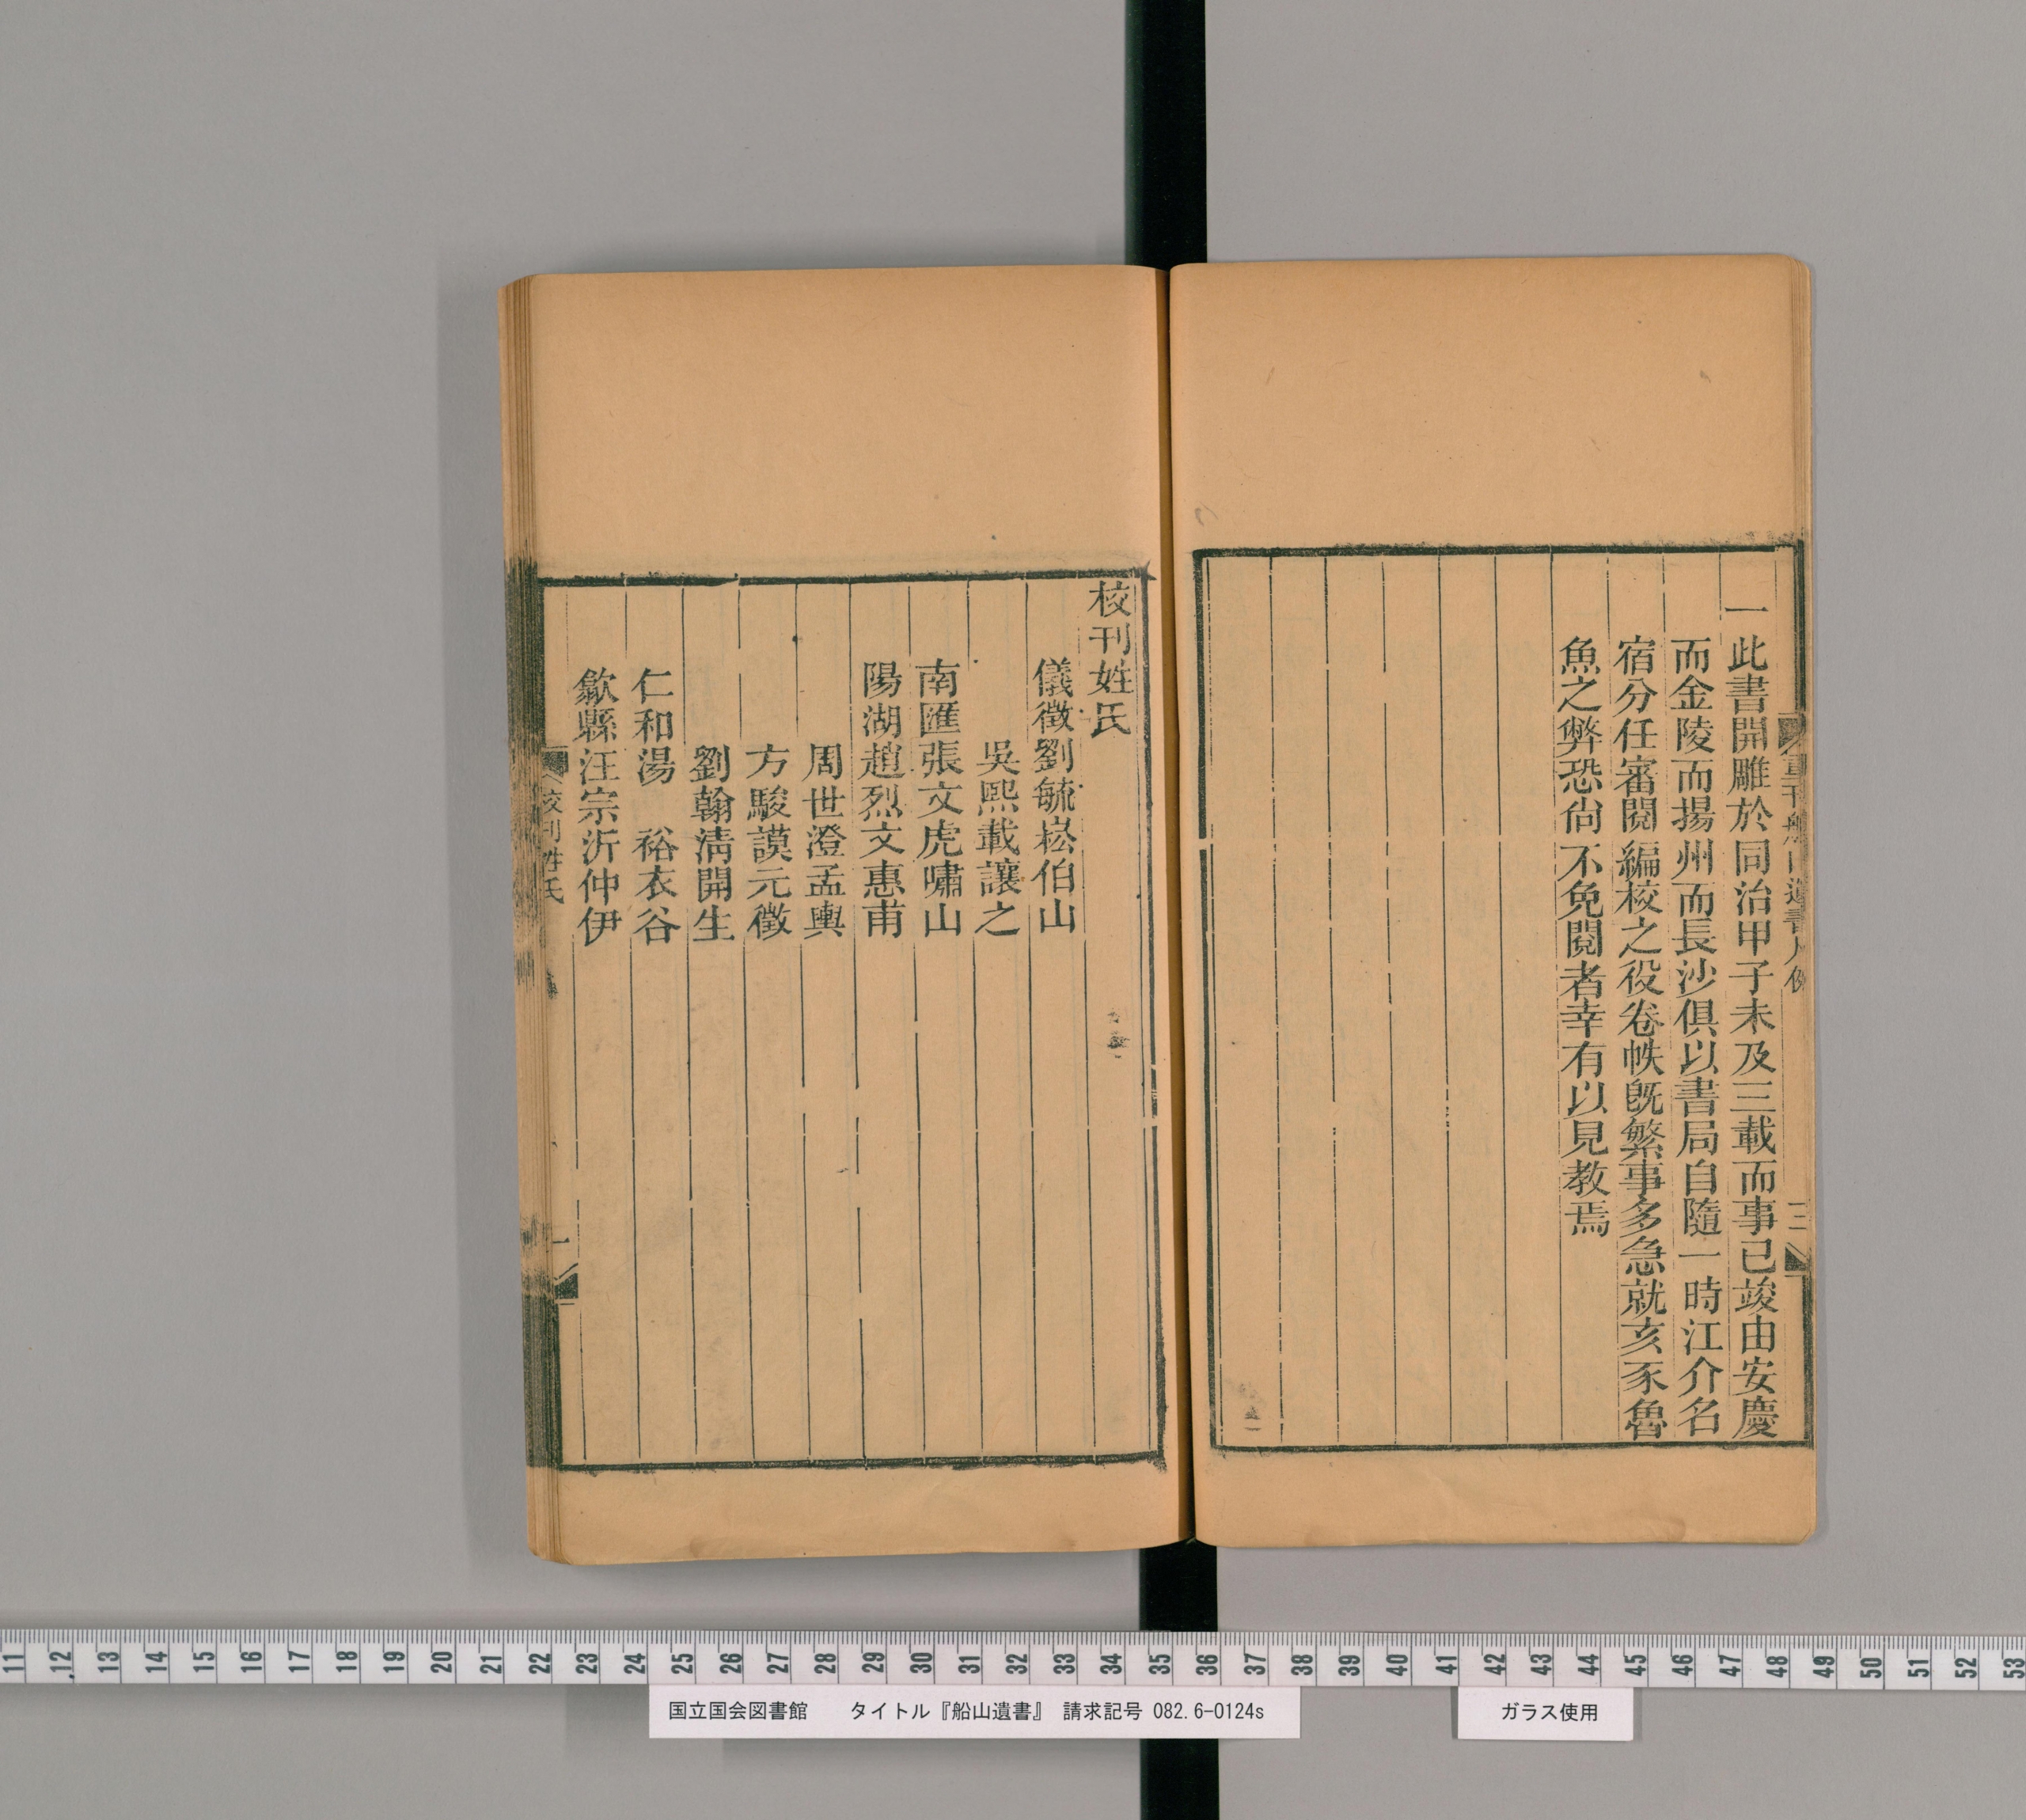 重刊船山遺書凡例
三
一此書開雕於同治甲子未及三載而事已竣由安慶
而金陵而揚州而長沙俱以書局自隨一時江介名
宿分任審閱編校之役卷帙旣繁事多急就亥豕魯
魚之弊恐尙不免閱者幸有以見教焉
校刊姓氏
儀徵劉毓崧伯山
吳熙載讓之
南匯張文虎嘯山
陽湖趙烈文惠甫
周世澄孟輿
方駿謨元徵
劉翰淸開生
仁和湯　裕衣谷
歙縣汪宗沂仲伊
校刊姓氏
一
11 12 13 14 15 16 17 18 19 20 21 22 23 24 25 26 27 28 29 30 31 32 33 34 35 36 37 38 39 40 41 42 43 44 45 46 47 48 49 50 51 52 53
国立国会図書館　タイトル『船山遺書』　請求記号 082.6-0124s
ガラス使用